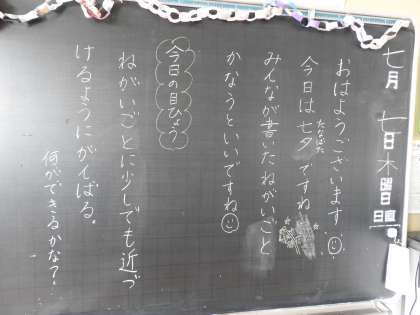 七月七日木曜日
日直
おはようございます。
今日は七夕ですね
たなばた
みんなが書いたねがいごと
かなうといいですね
今日の目ひょう
ねがいごとに少しでも近づ
けるようにがんばる。
何ができるかな?